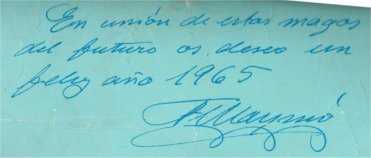 En unión de estos magos
del futuro os deseo un
feliz año 1965